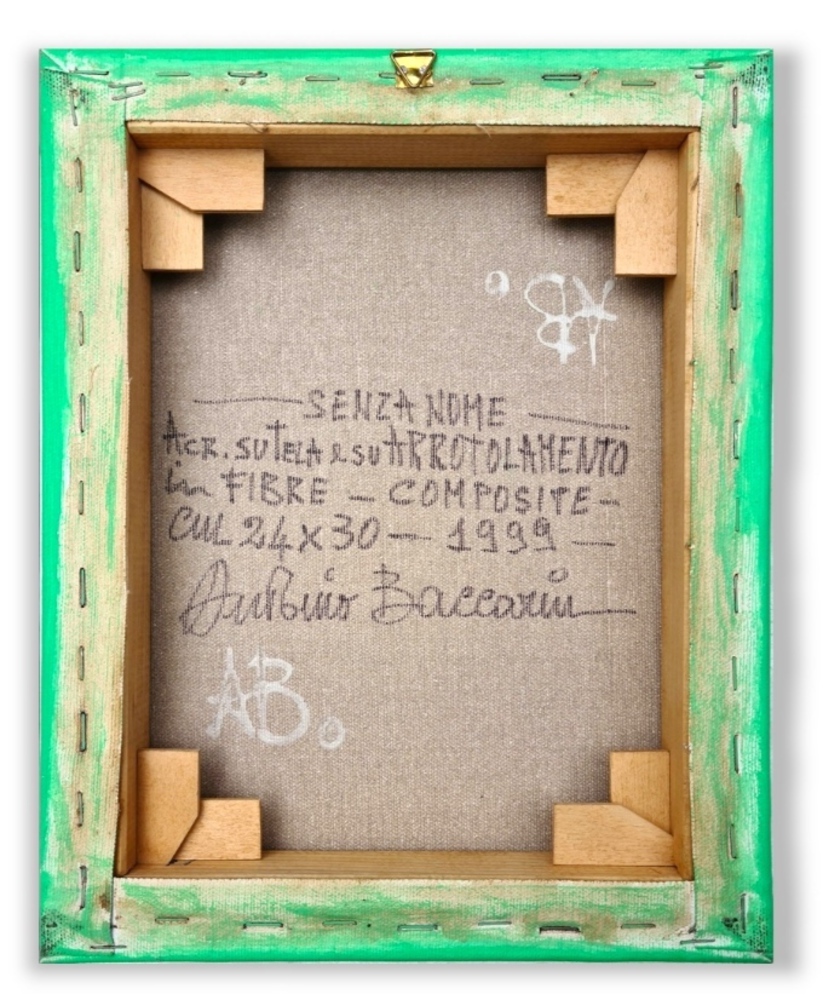 AB.
SENZA NOME
Acr. su Tela e su ARROTOLAMENTO
in FIBRE — COMPOSITE —
CM 24x30 — 1999 —
Antonio Baccarin
AB.